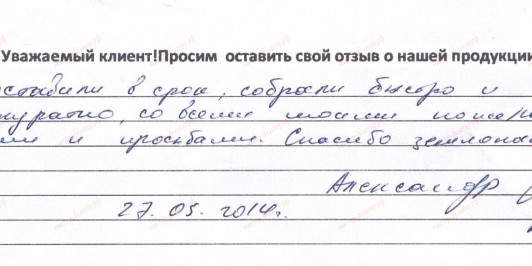 Уважаемый клиент!Просим оставить свой отзыв о нашей продукции
ставили в срок, собрали быстро и
куратно, со всеми моими поже
ми и просьбами. Спасибо
Александр
27.05.2014г.